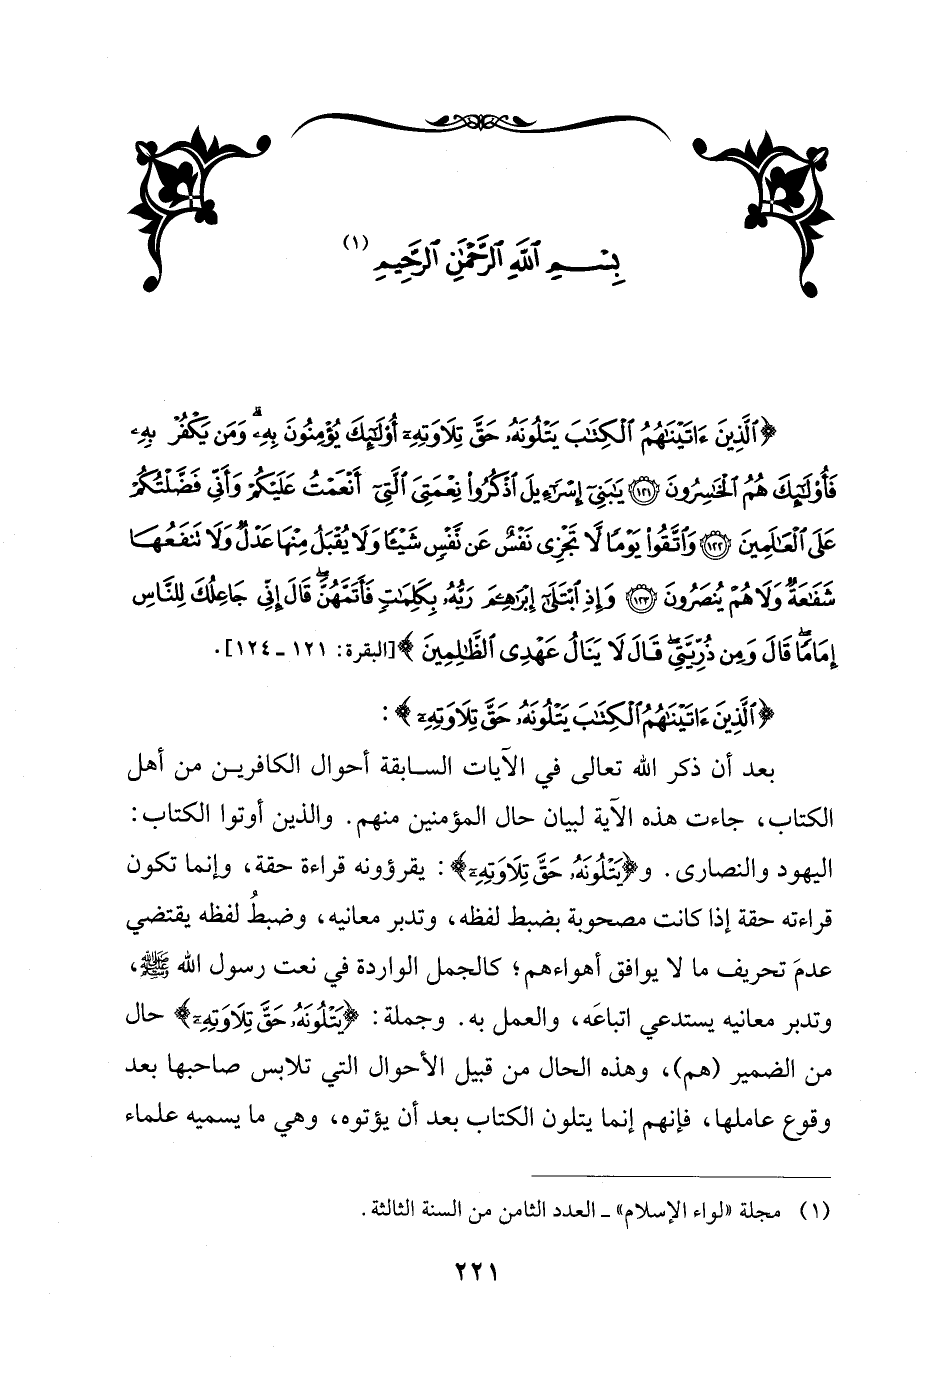 بِسْمِ ٱللَّهِ ٱلرَّحْمَٰنِ ٱلرَّحِيمِ (١)
﴿ٱلَّذِينَ ءَاتَيْنَٰهُمُ ٱلْكِتَٰبَ يَتْلُونَهُۥ حَقَّ تِلَاوَتِهِۦٓ أُو۟لَٰٓئِكَ يُؤْمِنُونَ بِهِۦۗ وَمَن يَكْفُرْ بِهِۦ
فَأُو۟لَٰٓئِكَ هُمُ ٱلْخَٰسِرُونَ ﴿١٢١﴾ يَٰبَنِىٓ إِسْرَٰٓءِيلَ ٱذْكُرُوا۟ نِعْمَتِىَ ٱلَّتِىٓ أَنْعَمْتُ عَلَيْكُمْ وَأَنِّى فَضَّلْتُكُمْ
عَلَى ٱلْعَٰلَمِينَ ﴿١٢٢﴾ وَٱتَّقُوا۟ يَوْمًا لَّا تَجْزِى نَفْسٌ عَن نَّفْسٍ شَيْـًٔا وَلَا يُقْبَلُ مِنْهَا عَدْلٌ وَلَا تَنفَعُهَا
شَفَٰعَةٌ وَلَا هُمْ يُنصَرُونَ ﴿١٢٣﴾ وَإِذِ ٱبْتَلَىٰٓ إِبْرَٰهِـۧمَ رَبُّهُۥ بِكَلِمَٰتٍ فَأَتَمَّهُنَّۖ قَالَ إِنِّى جَاعِلُكَ لِلنَّاسِ
إِمَامًاۖ قَالَ وَمِن ذُرِّيَّتِىۖ قَالَ لَا يَنَالُ عَهْدِى ٱلظَّٰلِمِينَ﴾ [البقرة: ١٢١ ـ ١٢٤].
﴿ٱلَّذِينَ ءَاتَيْنَٰهُمُ ٱلْكِتَٰبَ يَتْلُونَهُۥ حَقَّ تِلَاوَتِهِۦٓ﴾:
بعد أن ذكر الله تعالى في الآيات السابقة أحوال الكافرين من أهل
الكتاب، جاءت هذه الآية لبيان حال المؤمنين منهم. والذين أوتوا الكتاب:
اليهود والنصارى. و﴿يَتْلُونَهُۥ حَقَّ تِلَاوَتِهِۦٓ﴾: يقرؤونه قراءة حقة، وإنما تكون
قراءته حقة إذا كانت مصحوبة بضبط لفظه، وتدبر معانيه، وضبطُ لفظه يقتضي
عدمَ تحريف ما لا يوافق أهواءهم؛ كالجمل الواردة في نعت رسول الله ﷺ،
وتدبر معانيه يستدعي اتباعَه، والعمل به. وجملة: ﴿يَتْلُونَهُۥ حَقَّ تِلَاوَتِهِۦٓ﴾ حال
من الضمير (هم)، وهذه الحال من قبيل الأحوال التي تلابس صاحبها بعد
وقوع عاملها، فإنهم إنما يتلون الكتاب بعد أن يؤتوه، وهي ما يسميه علماء
(١) مجلة «لواء الإسلام» ـ العدد الثامن من السنة الثالثة.
٢٢١